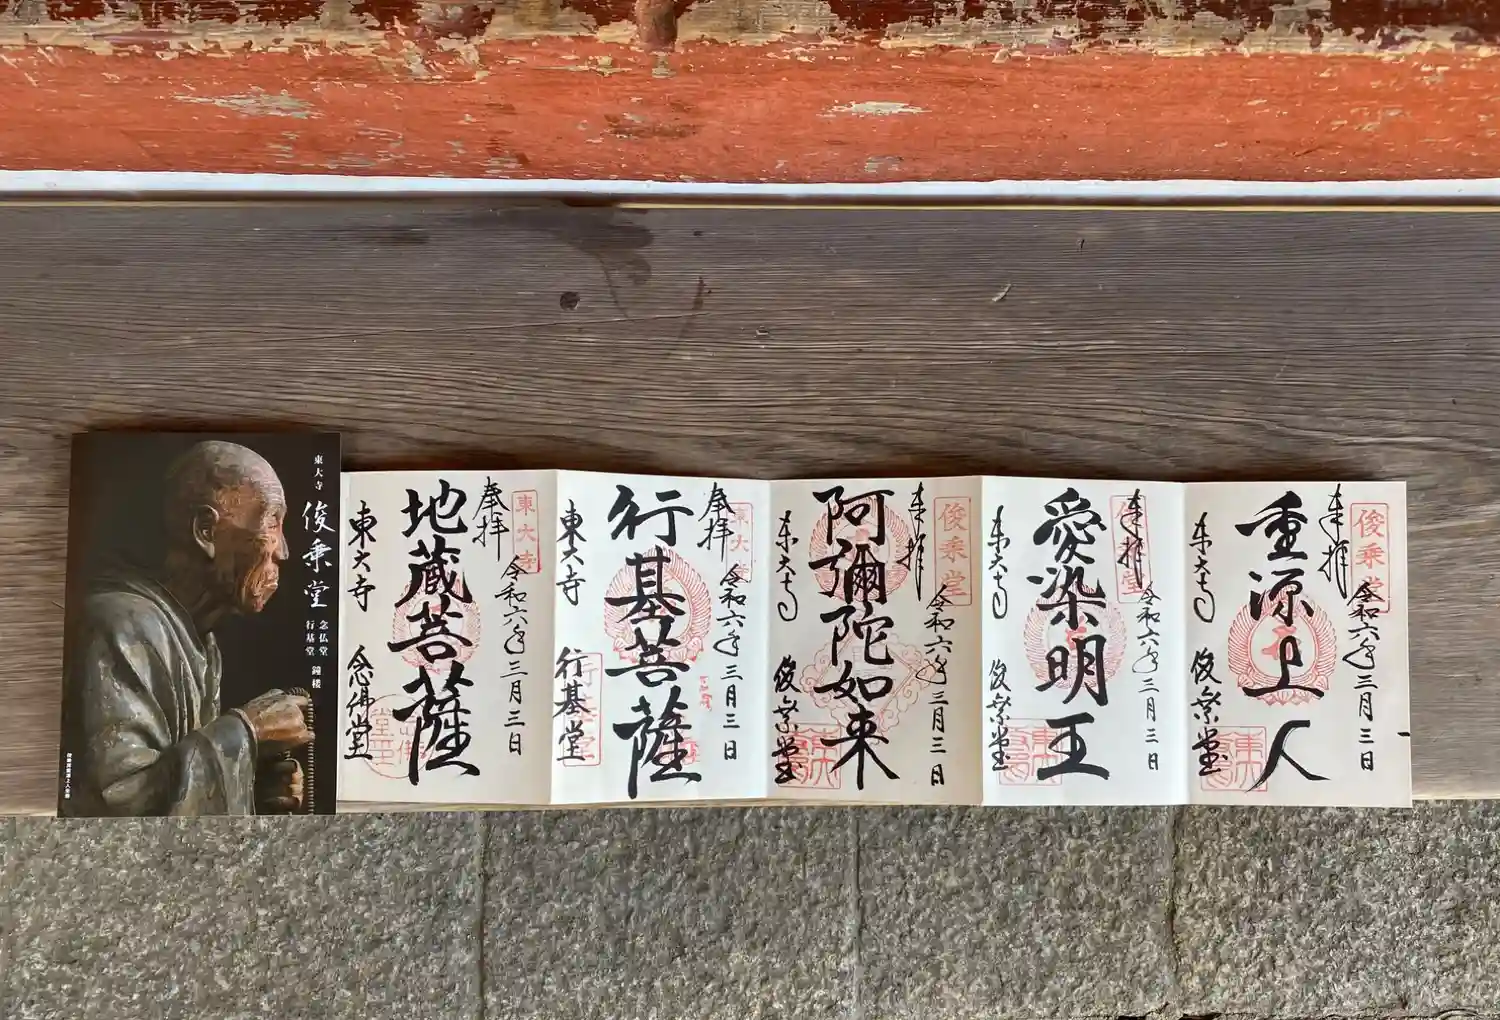 東大寺
俊乗堂
念仏堂
行基堂
鐘楼
俊乗房重源上人坐像
東大寺
奉拝
令和六年三月三日
地蔵菩薩
東大寺 念佛堂
東大寺
奉拝
令和六年三月三日
行基菩薩
東大寺 行基堂
行基堂
俊乗堂
奉拝
令和六年三月三日
阿彌陀如来
東大寺 俊乗堂
俊乗堂
奉拝
令和六年三月三日
愛染明王
東大寺 俊乗堂
俊乗堂
奉拝
令和六年三月三日
重源上人
東大寺 俊乗堂